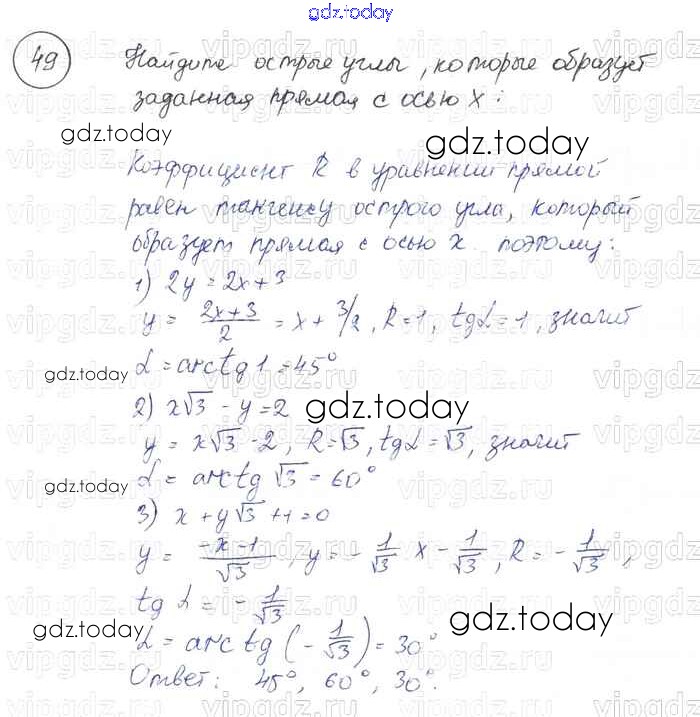 gdz.today
49 Найдите острые углы, которые образует
заданная прямая с осью x:
gdz.today
gdz.today
Коэффициент R в уравнении прямой
равен тангенсу острого угла, который
образует прямая с осью x. поэтому:
1) 2y = 2x+3
y = (2x+3)/2 = x + 3/2, R=1, tgL=1, значит
L = arctg 1 = 45°
gdz.today
2) x√3 - y = 2
gdz.today
y = x√3 - 2, R = √3, tgL = √3, значит
L = arctg √3 = 60°
gdz.today
3) x + y√3 + 1 = 0
y = (-x-1)/√3, y = - 1/√3 x - 1/√3, R = - 1/√3,
tg L = - 1/√3
gdz.today
gdz.today
L = arctg (- 1/√3) = 30°
Ответ: 45°, 60°, 30°.